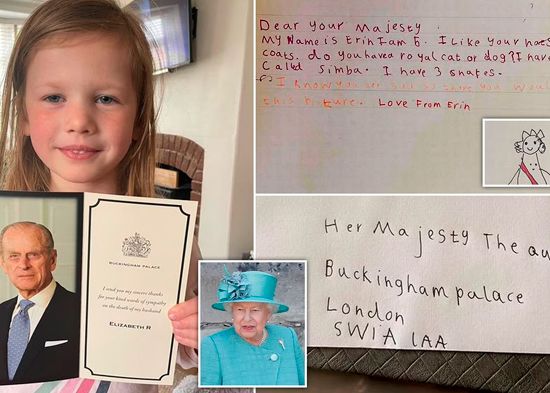 BUCKINGHAM PALACE
I send you my sincere thanks
for your kind words of sympathy
on the death of my husband
ELIZABETH R
Dear Your Majesty
My Name is Erin I am 6. I Like Your hats
coats. do You have a royal cat or dog? I have
Called Simba. I have 3 snakes.
I know you
this picture. Love From Erin
Her Majesty The
Buckingham palace
London
SW1A 1AA